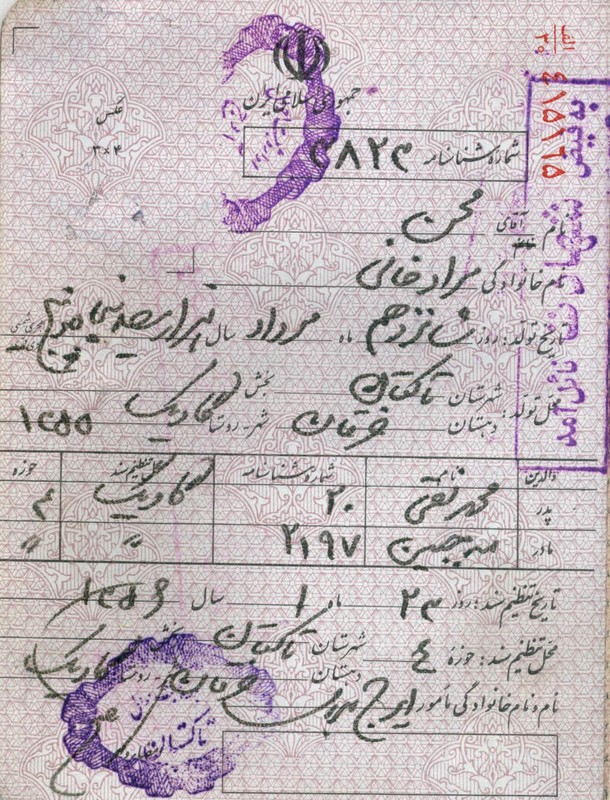 الف
۳۰
۱۵۱۶۵ ۶
به فیض شهادت نائل آمد
جمهوری اسلامی ایران
عکس
۴×۳
شماره شناسنامه ۳۸۲۳
نام آقای محسن
نام خانوادگی مرادخانی
تاریخ تولد: روز شانزدهم ماه مرداد سال هزار و سیصد و پنجاه و پنج هجری شمسی
محل تولد: شهرستان تاکستان بخش
دهستان خرقان شهر-روستا ۱۳۵۵
والدین نام شماره شناسنامه محل تنظیم سند حوزه
پدر محمدتقی ۲۰ ۴
مادر مه‌جبین ۲۱۹۷ " "
تاریخ تنظیم سند: روز ۲۳ ماه ۱ سال ۱۳۵۶
محل تنظیم سند: حوزهٔ ۴ شهرستان تاکستان بخش
دهستان خرقان شهر-روستا
نام و نام خانوادگی مأمور ایرج
تاکستان